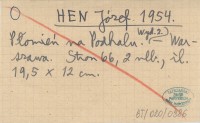 HEN Józef. 1954.
Płomień na Podhalu. Wyd. 2
War-
szawa. Stron 66, 2 nlb., il.
19,5 x 12 cm.
BT/020/0386